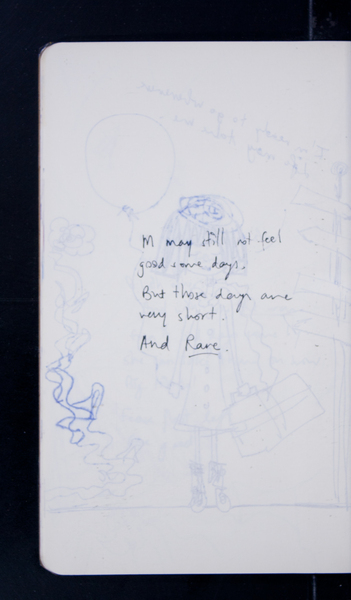 M may still not feel
good some days.
But those days are
very short.
And Rare.